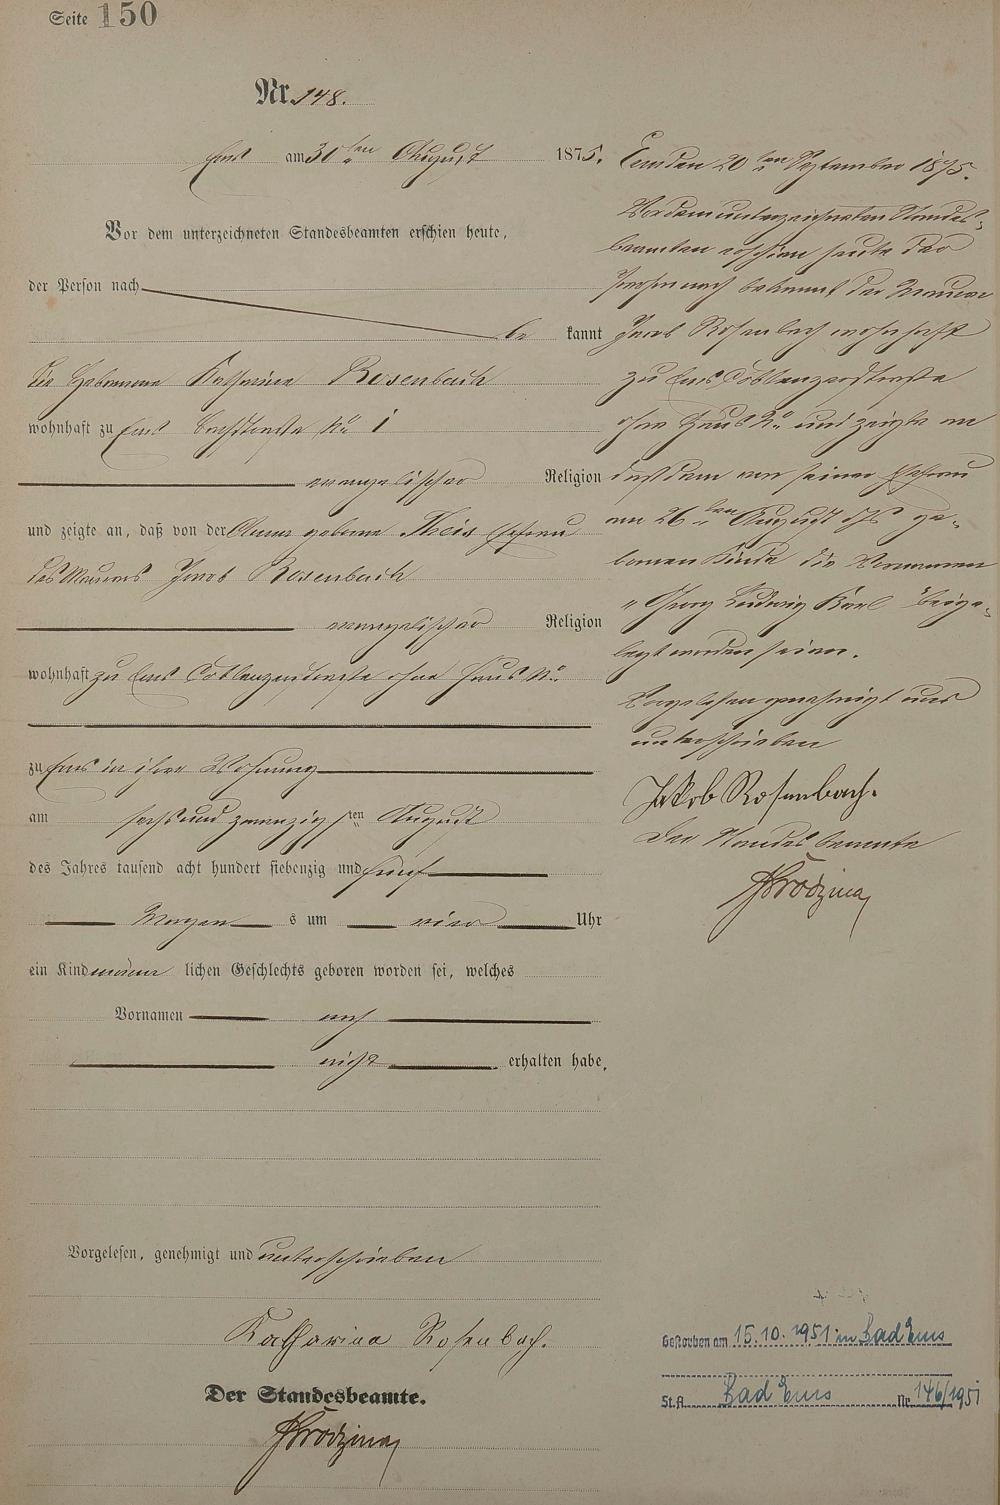 Seite 150
Nr. 148.
Ems am 30ten August 1875.
Vor dem unterzeichneten Standesbeamten erschien heute,
der Person nach
be kannt
die Hebamme Katharina Rosenbach
wohnhaft zu Ems Bachstraße No 1
evangelischer Religion
und zeigte an, daß von der Anna geborne Theis Ehefrau
des Maurers Jacob Rosenbach
evangelischer Religion
wohnhaft zu Ems Coblenzerstraße ohne Haus No
zu Ems in ihrer Wohnung
am sechsundzwanzigsten August
des Jahres tausend acht hundert siebenzig und fünf
Morgen s um vier Uhr
ein Kind männ lichen Geschlechts geboren worden sei, welches
Vornamen noch
nicht erhalten habe.
Vorgelesen, genehmigt und unterschrieben
Katharina Rosenbach.
Der Standesbeamte.
Ems den 20ten September 1875.
Vor dem unterzeichneten Standes-
beamten erschien heute der
Person nach bekannt der Maurer
Jacob Rosenbach wohnhaft
zu Ems Coblenzerstraße
ohne Haus No und zeigte an
daß dem von seiner Ehefrau
am 26ten August ds ge-
bornen Kinde die Vornamen
"Georg Ludwig Karl" beige-
legt worden seien.
Vorgelesen genehmigt und
unterschrieben
Jakob Rosenbach.
Der Standesbeamte
Gestorben am 15.10.1951 in Bad Ems
St.A. Bad Ems Nr. 146/1951